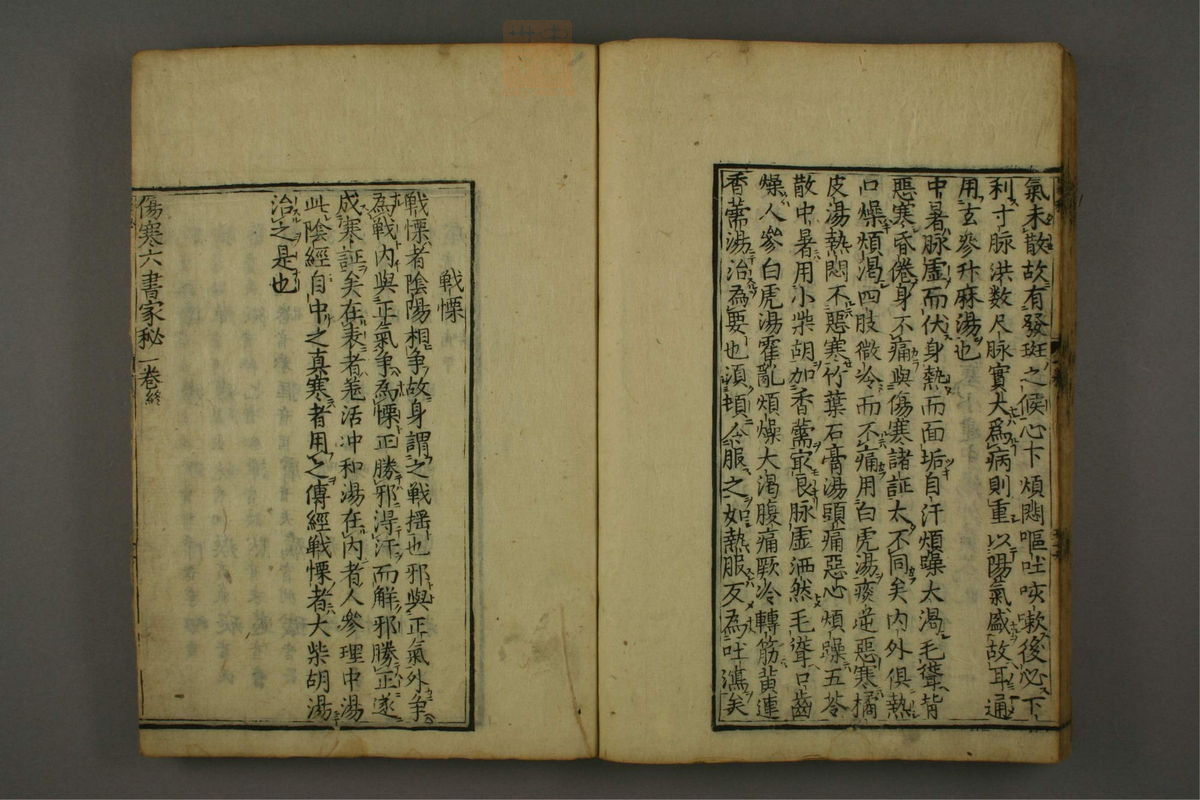 氣未散故有發斑之候心下煩悶嘔吐咳嗽後必下
利寸脉洪数尺脉實大爲病則重以陽氣盛故耳通
用玄參升麻湯也
中暑脉虚而伏身熱而面垢自汗煩躁大渴毛聳背
惡寒昏倦身不痛與傷寒諸証大不同矣内外俱熱
口燥煩渴四肢微冷而不痛用白虎湯痰逆惡寒橘
皮湯熱悶不惡寒竹葉石膏湯頭痛惡心煩躁五苓
散中暑用小柴胡加香薷㝡良脉虚洒然毛聳口齒
燥人參白虎湯霍亂煩燥大渴腹痛厥冷轉筋黄連
香薷湯治為要也須頓冷服之如熱服反為吐瀉矣
戦慄
戦慄者陰陽相争故身謂之戦揺也邪與正氣外争
為戦内與正氣争為慄正勝邪淂汗而解邪勝正遂
成寒証矣在表者羗活冲和湯在内者人參理中湯
此陰經自中之真寒者用之傳經戦慄者大柴胡湯
治之是也
傷寒六書家秘一卷終